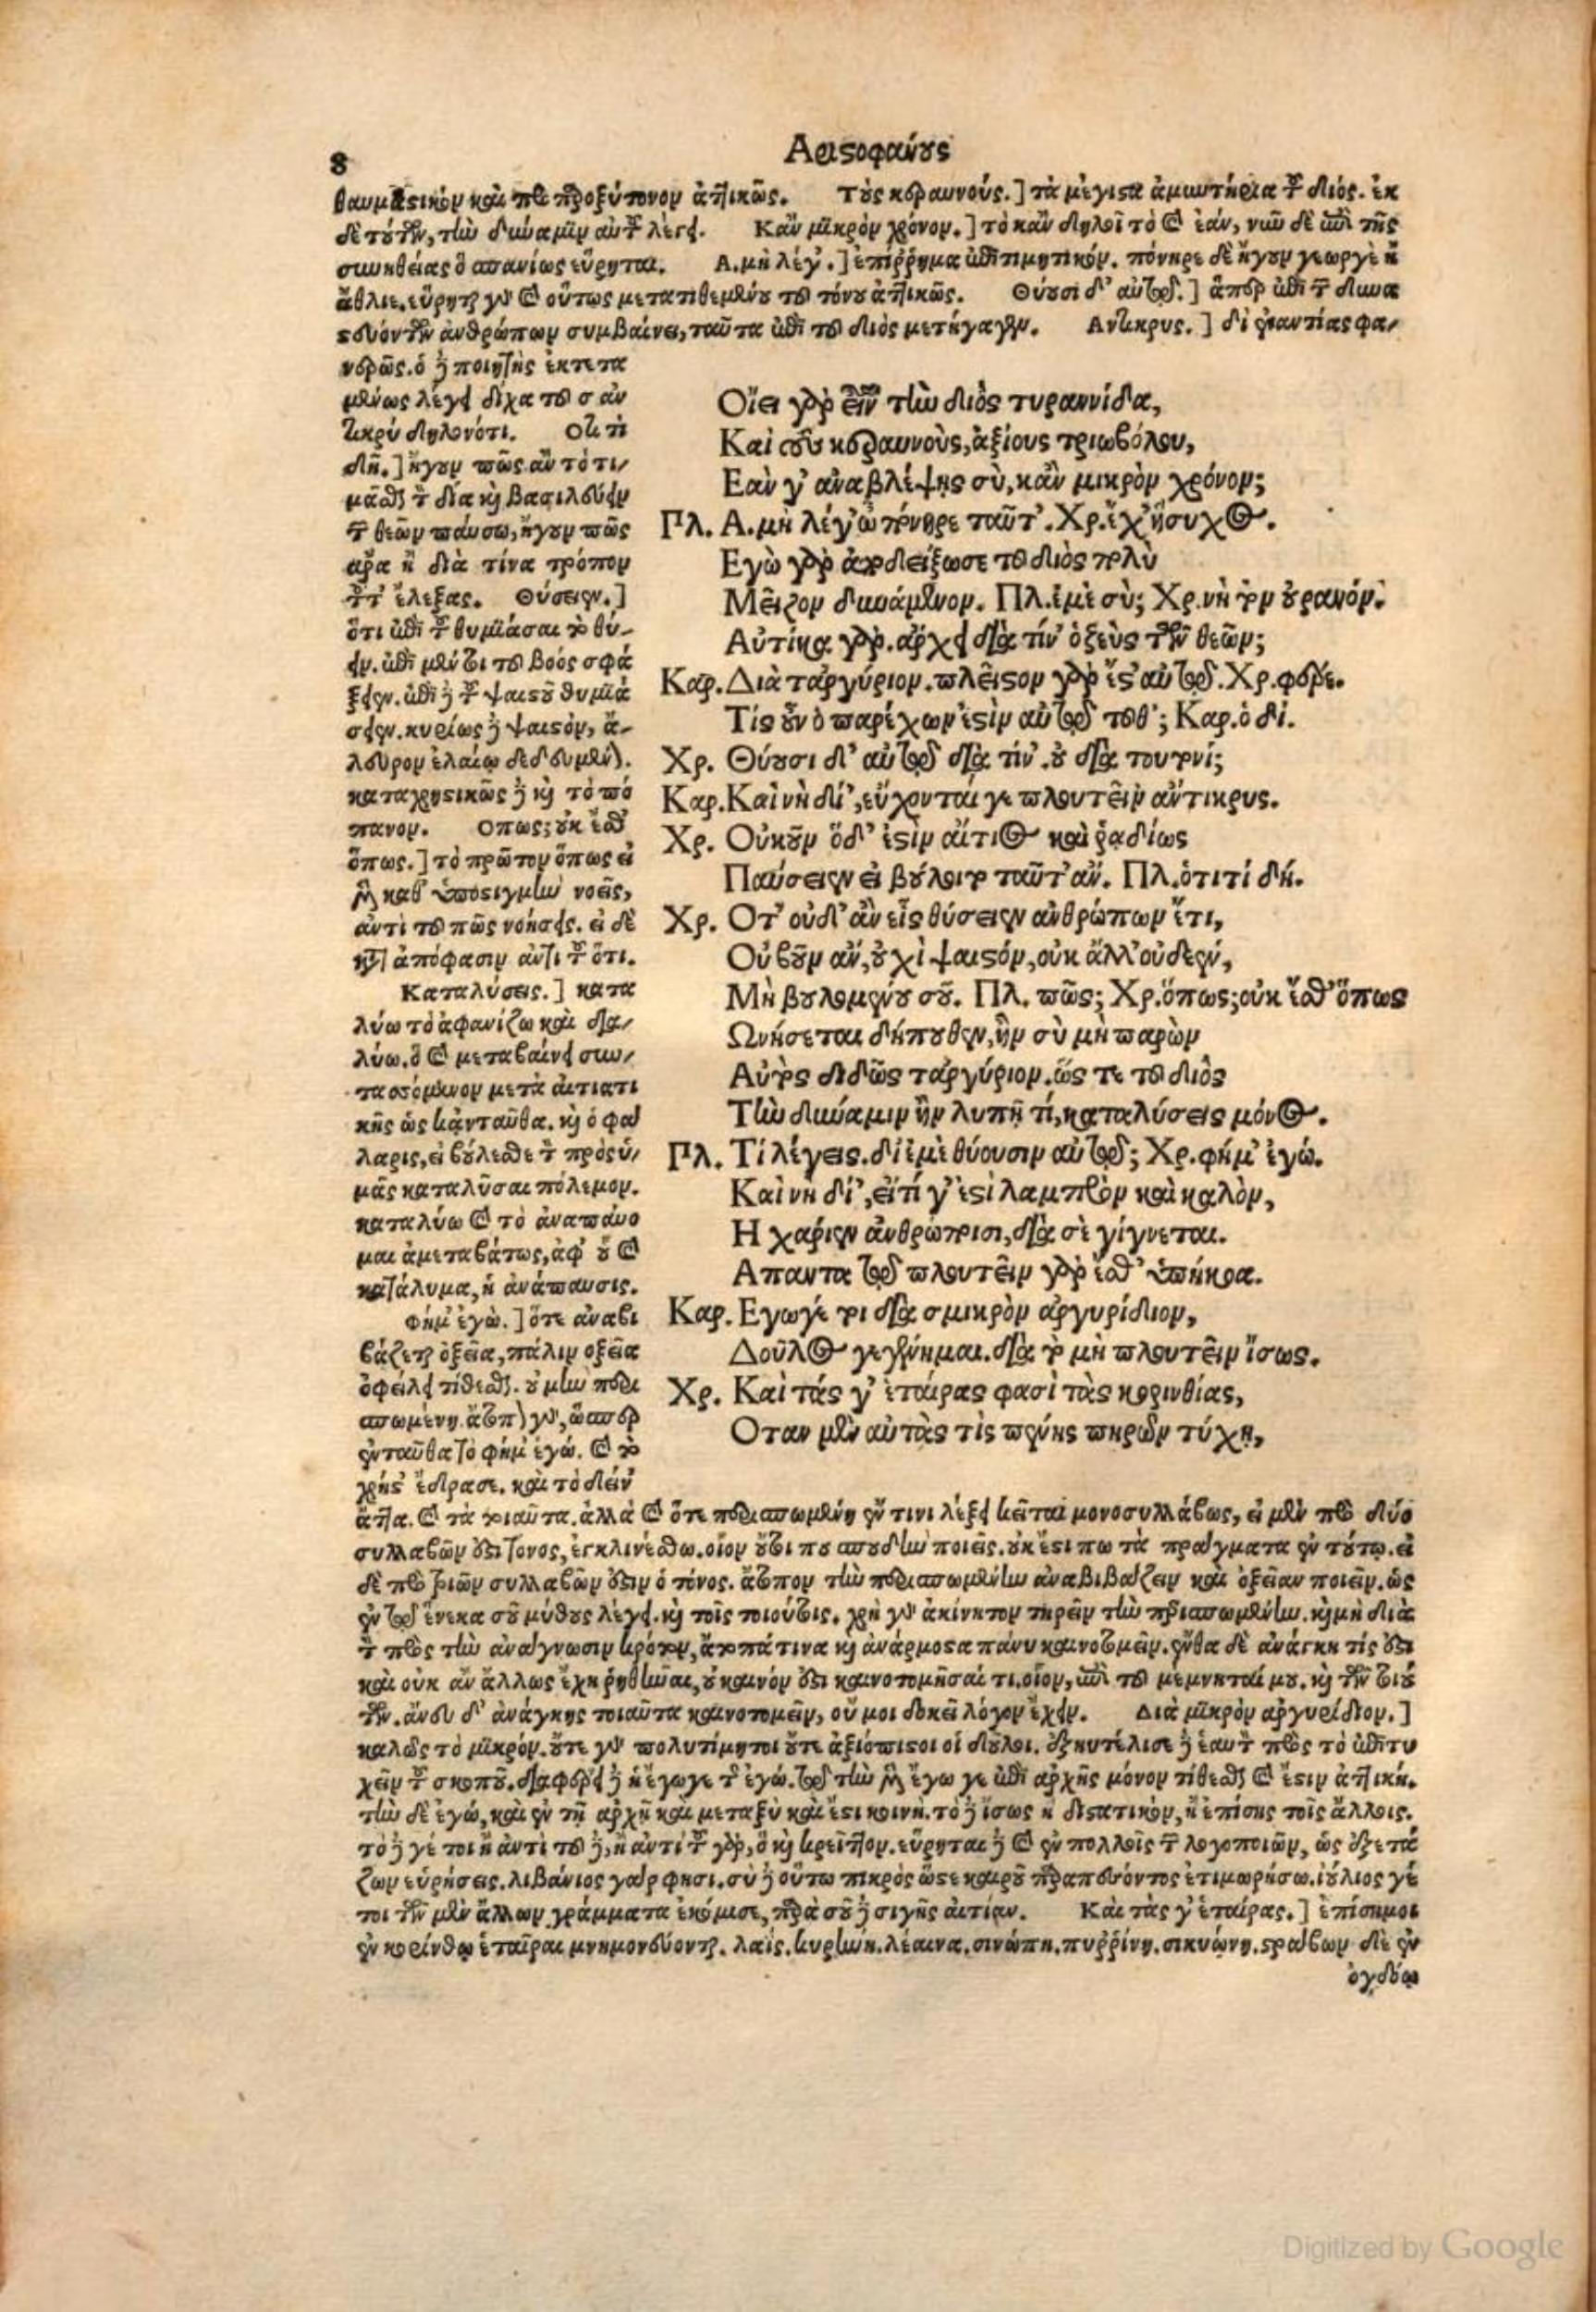 8
Αριστοφάνους
θαυμαστικὸν καὶ προπαροξύτονον ἀττικῶς. Τοὺς κεραυνούς.] τὰ μέγιστα ἀμυντήρια τοῦ διός. ἐκ
δὲ τούτων, τὴν δύναμιν αὐτοῦ λέγει. Κἂν μικρὸν χρόνον.] τὸ κἂν δηλοῖ τὸ καὶ ἐάν, νῦν δὲ ἀπὸ τῆς
συνηθείας ὃ σπανίως εὕρηται. Α. μὴ λέγ'.] ἐπίρρημα ἐπιτιμητικόν. πόνηρε δὲ ἤγουν γεωργὲ ἢ
ἄθλιε. εὕρηται γὰρ καὶ οὕτως μετατιθεμένου τοῦ τόνου ἀττικῶς. Θύουσι δ' αὐτῷ.] ἅπερ ἐπὶ τῶν δυνα
στευόντων ἀνθρώπων συμβαίνει, ταῦτα ἐπὶ τοῦ διὸς μετήγαγεν. Αντικρυς.] δι' ἐναντίας φα-
νερῶς. ὁ δὲ ποιητὴς ἐκτετα
μένως λέγει δίχα τοῦ σ ἀν
τικρὺ δηλονότι. Οτι τί
δή.] ἤγουν πῶς ἂν τὸ τι-
μᾶσθαι τὸν δία καὶ βασιλεύειν
τῶν θεῶν παύσω, ἤγουν πῶς
ἄρα ἢ διὰ τίνα τρόπον
τοῦτ' ἔλεξας. Θύσειεν.]
ὅτι ἐπὶ τοῦ θυμιάσαι τὸ θύ-
ειν. ἐπὶ μέντοι τοῦ βοὸς σφά
ξειεν. ἐπὶ δὲ τοῦ ψαιστοῦ θυμιά
σειεν. κυρίως δὲ ψαιστὸν, ἄ-
λευρον ἐλαίῳ δεδευμένον.
καταχρηστικῶς δὲ καὶ τὸ πό
πανον. Οπως; οὐκ ἔσθ'
ὅπως.] τὸ πρῶτον ὅπως εἰ
μὲν καθ' ὑποστιγμὴν νοεῖς,
ἀντὶ τοῦ πῶς νοήσεις. εἰ δὲ
κατ' ἀπόφασιν ἀντὶ τοῦ ὅτι.
Καταλύσεις.] κατα
λύω τὸ ἀφανίζω καὶ δια-
λύω. ὃ καὶ μεταβαίνει συν-
τασσόμενον μετὰ αἰτιατι
κῆς ὡς κἀνταῦθα. καὶ ὁ φα
λαρις, εἰ βούλεσθε τὸν πρὸς ὑ-
μᾶς καταλῦσαι πόλεμον.
καταλύω καὶ τὸ ἀναπαύο
μαι ἀμεταβάτως, ἀφ' οὗ καὶ
κατάλυμα, ἡ ἀνάπαυσις.
Φήμ' ἐγώ.] ὅτε ἀναβι
βάζεται ὀξεῖα, πάλιν ὀξεῖα
ὀφείλει τίθεσθαι. οὐ μὴν περι
σπωμένη. ἄτοπον γὰρ, ὥσπερ
ἐνταῦθα τὸ φήμ' ἐγώ. καὶ τὸ
χρήστ' ἔδρασε. καὶ τὸ δείν'
Οἴει γὰρ εἶναι τὴν διὸς τυραννίδα,
Καὶ τοὺς κεραυνοὺς, ἀξίους τριωβόλου,
Εὰν γ' ἀναβλέψῃς σὺ, κἂν μικρὸν χρόνον;
Πλ. Α. μὴ λέγ' ὦ πόνηρε ταῦτ'. Χρ. ἔχ' ἥσυχος.
Εγὼ γὰρ ἀποδείξω σε τοῦ διὸς πολὺ
Μεῖζον δυνάμενον. Πλ. ἐμὲ σύ; Χρ. νὴ τὸν οὐρανόν.
Αὐτίκα γὰρ. ἄρχει διὰ τίν' ὁ ζεὺς τῶν θεῶν;
Καρ. Διὰ τἀργύριον. πλεῖστον γὰρ ἔστ' αὐτῷ. Χρ. φέρε.
Τίς οὖν ὁ παρέχων ἐστὶν αὐτῷ τοῦθ'; Καρ. ὁδί.
Χρ. Θύουσι δ' αὐτῷ διὰ τίν'. οὐ διὰ τουτονί;
Καρ. Καὶ νὴ δί', εὔχονταί γε πλουτεῖν ἄντικρυς.
Χρ. Οὐκοῦν ὅδ' ἐστὶν αἴτιος καὶ ῥᾳδίως
Παύσειεν εἰ βούλοιτο ταῦτ' ἄν. Πλ. ὁτιτί δή.
Χρ. Οτ' οὐδ' ἂν εἷς θύσειεν ἀνθρώπων ἔτι,
Οὐ βοῦν ἄν, οὐχὶ ψαιστόν, οὐκ ἄλλ' οὐδεέν,
Μὴ βουλομένου σοῦ. Πλ. πῶς; Χρ. ὅπως; οὐκ ἔσθ' ὅπως
Ωνήσεται δήπουθεν, ἢν σὺ μὴ παρὼν
Αὐτὸς διδῷς τἀργύριον. ὥς τε τοῦ διὸς
Τὴν δύναμιν ἢν λυπῇ τί, καταλύσεις μόνος.
Πλ. Τί λέγεις. δι' ἐμὲ θύουσιν αὐτῷ; Χρ. φήμ' ἐγώ.
Καὶ νὴ δί', εἴ τί γ' ἐστὶ λαμπρὸν καὶ καλὸν,
Η χαρίεν ἀνθρώποισι, διὰ σὲ γίγνεται.
Απαντα τῷ πλουτεῖν γὰρ ἐσθ' ὑπήκοα.
Καρ. Εγωγέ τοι διὰ σμικρὸν ἀργυρίδιον,
Δοῦλος γεγένημαι. διὰ τὸ μὴ πλουτεῖν ἴσως.
Χρ. Καὶ τάς γ' ἑταίρας φασὶ τὰς κορινθίας,
Οταν μὲν αὐτὰς τὶς πένης πειρῶν τύχῃ,
ἄττα. καὶ τὰ τοιαῦτα. ἀλλὰ καὶ ὅτε περισπωμένη ἔν τινι λέξει κεῖται μονοσυλλάβως, εἰ μὲν πρὸ δύο
συλλαβῶν ἐστι τόνος, ἐγκλινέσθω. οἷον οὔτι που σπουδὴν ποιεῖς. οὐκ ἔστι πω τὰ πράγματα ἐν τούτῳ. εἰ
δὲ πρὸ τριῶν συλλαβῶν ἐστιν ὁ τόνος. ἄτοπον τὴν περισπωμένην ἀναβιβάζειν καὶ ὀξεῖαν ποιεῖν. ὡς
ἐν τῷ ἕνεκα σοῦ μύθους λέγει. καὶ τοῖς τοιούτοις. χρὴ γὰρ ἀκίνητον τηρεῖν τὴν περισπωμένην. καὶ μὴ διὰ
τὸν πρὸς τὴν ἀνάγνωσιν κρότον, ἄτοπά τινα καὶ ἀνάρμοστα πάνυ καινοτομεῖν. ἔνθα δὲ ἀνάγκη τίς ἐστι
καὶ οὐκ ἂν ἄλλως ἔχῃ ῥηθῆναι, οὐ καινόν ἐστι καινοτομῆσαί τι. οἷον, ἐπὶ τοῦ μεμνηταί μου. καὶ τῶν τοιού
των. ἄνευ δ' ἀνάγκης τοιαῦτα καινοτομεῖν, οὔ μοι δοκεῖ λόγον ἔχειν. Διὰ μικρὸν ἀργυρίδιον.]
καλῶς τὸ μικρόν. οὔτε γὰρ πολυτίμητοι οὔτε ἀξιόπιστοι οἱ δοῦλοι. ἐξηυτέλισε δὲ ἑαυτὸν πρὸς τὸ ἐπιτυ
χεῖν τοῦ σκοποῦ. διαφέρει δὲ ἡ ἔγωγε τοῦ ἐγώ. τῷ τὴν μὲν ἔγωγε ἐπὶ ἀρχῆς μόνον τίθεσθαι καὶ ἔστιν ἀττική.
τὴν δὲ ἐγώ, καὶ ἐν τῇ ἀρχῇ καὶ μεταξὺ καὶ ἔστι κοινή. τὸ δὲ ἴσως ἢ διστατικὸν, ἢ ἐπίσης τοῖς ἄλλοις.
τὸ δὲ γέ τοι ἢ ἀντὶ τοῦ δὲ, ἢ ἀντὶ τοῦ γὰρ, ὃ καὶ κρεῖττον. εὕρηται δὲ καὶ ἐν πολλοῖς τῶν λογοποιῶν, ὡς ἐξετά
ζων εὑρήσεις. λιβάνιος γάρ φησι. σὺ δὲ οὕτω πικρὸς ὥστε καιροῦ παραπεσόντος ἐτιμωρήσω. ἰούλιος γέ
τοι τῶν μὲν ἄλλων γράμματα ἐκόμισε, παρὰ σοῦ δὲ σιγῆς αἰτίαν. Καὶ τὰς γ' ἑταίρας.] ἐπίσημοι
ἐν κορίνθῳ ἑταῖραι μνημονεύονται. λαΐς. κυρήνη. λέαινα. σινώπη. πυρρίνη. σικυώνη. στράβων δὲ ἐν
ὀγδόῳ
Digitized by Google